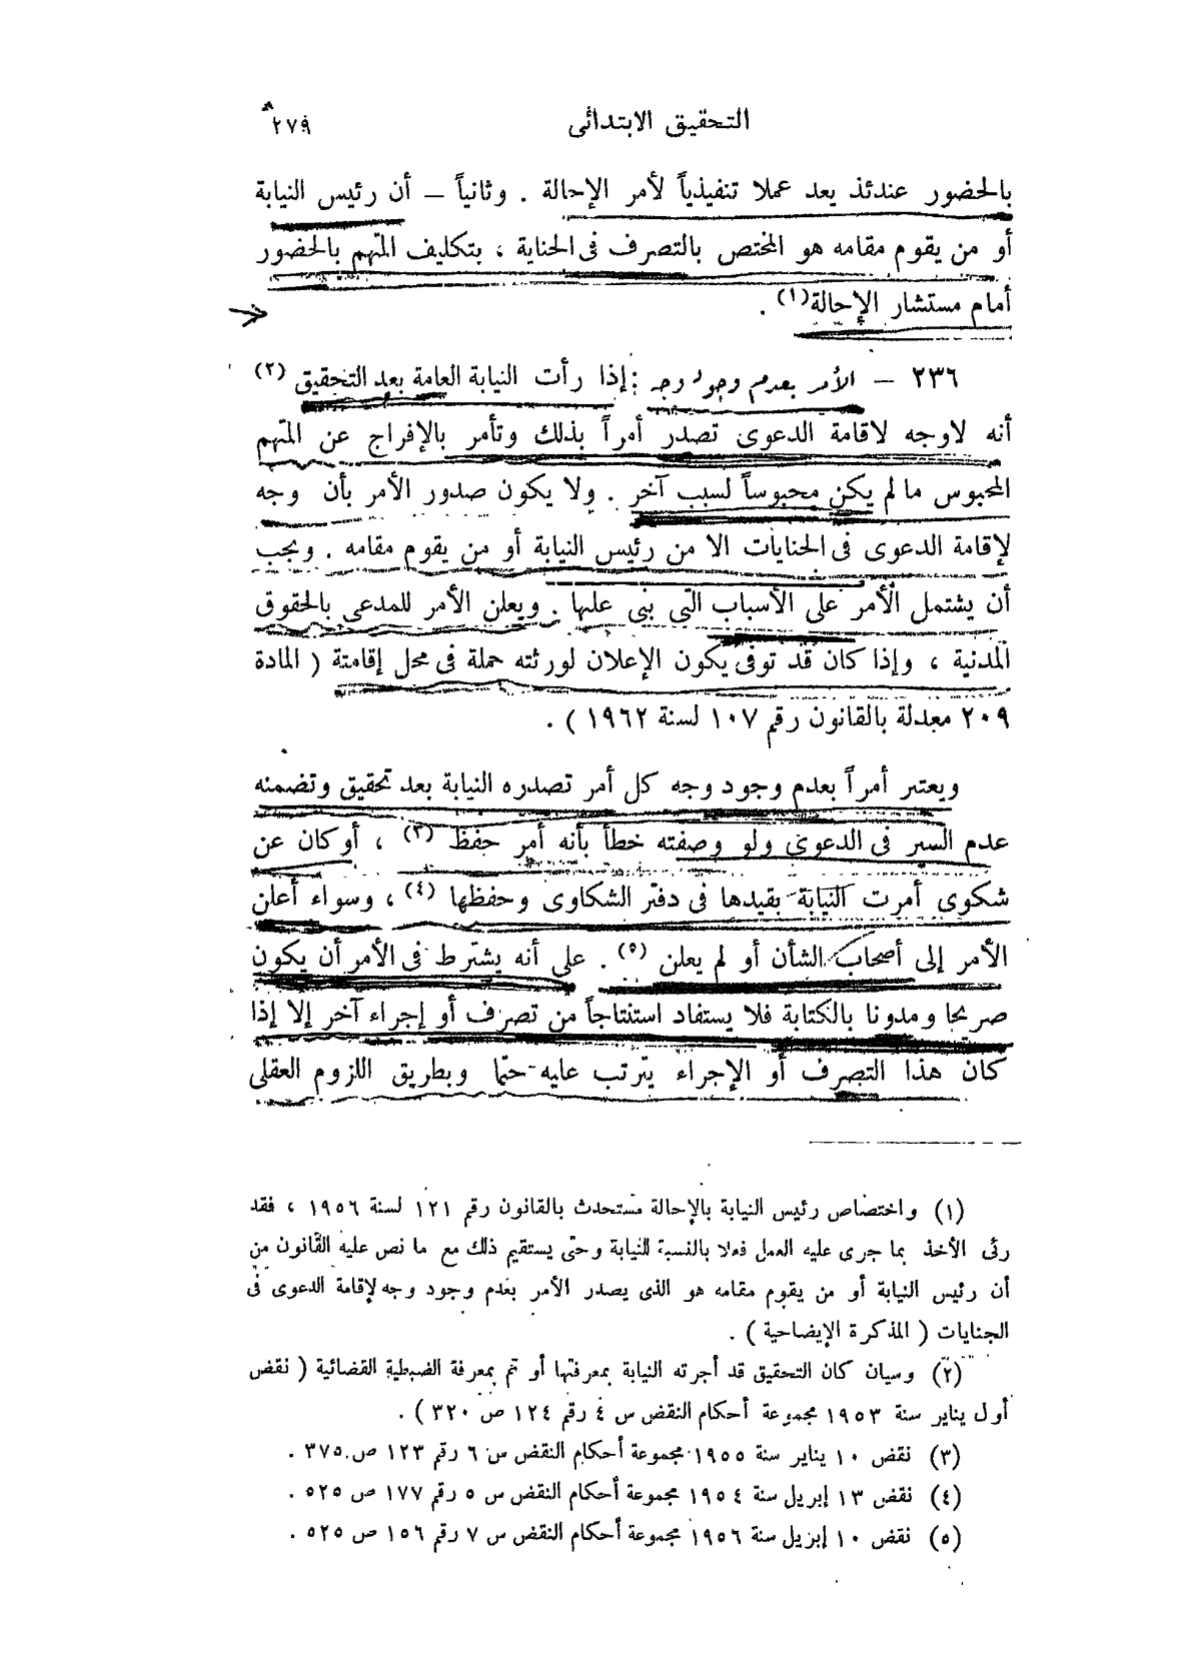 التحقيق الابتدائى
٢٧٩
بالحضور عندئذ يعد عملا تنفيذياً لأمر الإحالة . وثانياً — أن رئيس النيابة
أو من يقوم مقامه هو المختص بالتصرف فى الجناية ، بتكليف المتهم بالحضور
أمام مستشار الإحالة (١) .
٢٣٦ — الأمر بعدم وجود وجه : إذا رأت النيابة العامة بعد التحقيق (٢)
أنه لاوجه لاقامة الدعوى تصدر أمراً بذلك وتأمر بالإفراج عن المتهم
المحبوس ما لم يكن محبوساً لسبب آخر . ولا يكون صدور الأمر بأن وجه
لإقامة الدعوى فى الجنايات الا من رئيس النيابة أو من يقوم مقامه . ويجب
أن يشتمل الأمر على الأسباب التى بنى عليها . ويعلن الأمر للمدعى بالحقوق
المدنية ، وإذا كان قد توفى يكون الإعلان لورثته جملة فى محل إقامتة ( المادة
٢٠٩ معدلة بالقانون رقم ١٠٧ لسنة ١٩٦٢ ) .
ويعتبر أمراً بعدم وجود وجه كل أمر تصدره النيابة بعد تحقيق وتضمنه
عدم السير فى الدعوى ولو وصفته خطأ بأنه أمر حفظ (٣) ، أو كان عن
شكوى أمرت النيابة بقيدها فى دفتر الشكاوى وحفظها (٤) ، وسواء أعلن
الأمر إلى أصحاب الشأن أو لم يعلن (٥) . على أنه يشترط فى الأمر أن يكون
صريحا ومدونا بالكتابة فلا يستفاد استنتاجاً من تصرف أو إجراء آخر إلا إذا
كان هذا التصرف أو الإجراء يترتب عليه حتما وبطريق اللزوم العقلى
(١) واختصاص رئيس النيابة بالإحالة مستحدث بالقانون رقم ١٢١ لسنة ١٩٥٦ ، فقد
رئى الأخذ بما جرى عليه العمل فعلا بالنسبة للنيابة وحتى يستقيم ذلك مع ما نص عليه القانون من
أن رئيس النيابة أو من يقوم مقامه هو الذى يصدر الأمر بعدم وجود وجه لإقامة الدعوى فى
الجنايات ( المذكرة الإيضاحية ) .
(٢) وسيان كان التحقيق قد أجرته النيابة بمعرفتها أو تم بمعرفة الضبطية القضائية ( نقض
أول يناير سنة ١٩٥٣ مجموعة أحكام النقض س ٤ رقم ١٢٤ ص ٣٢٠ ) .
(٣) نقض ١٠ يناير سنة ١٩٥٥ مجموعة أحكام النقض س ٦ رقم ١٢٣ ص ٣٧٥ .
(٤) نقض ١٣ إبريل سنة ١٩٥٤ مجموعة أحكام النقض س ٥ رقم ١٧٧ ص ٥٢٥ .
(٥) نقض ١٠ إبريل سنة ١٩٥٦ مجموعة أحكام النقض س ٧ رقم ١٥٦ ص ٥٢٥ .